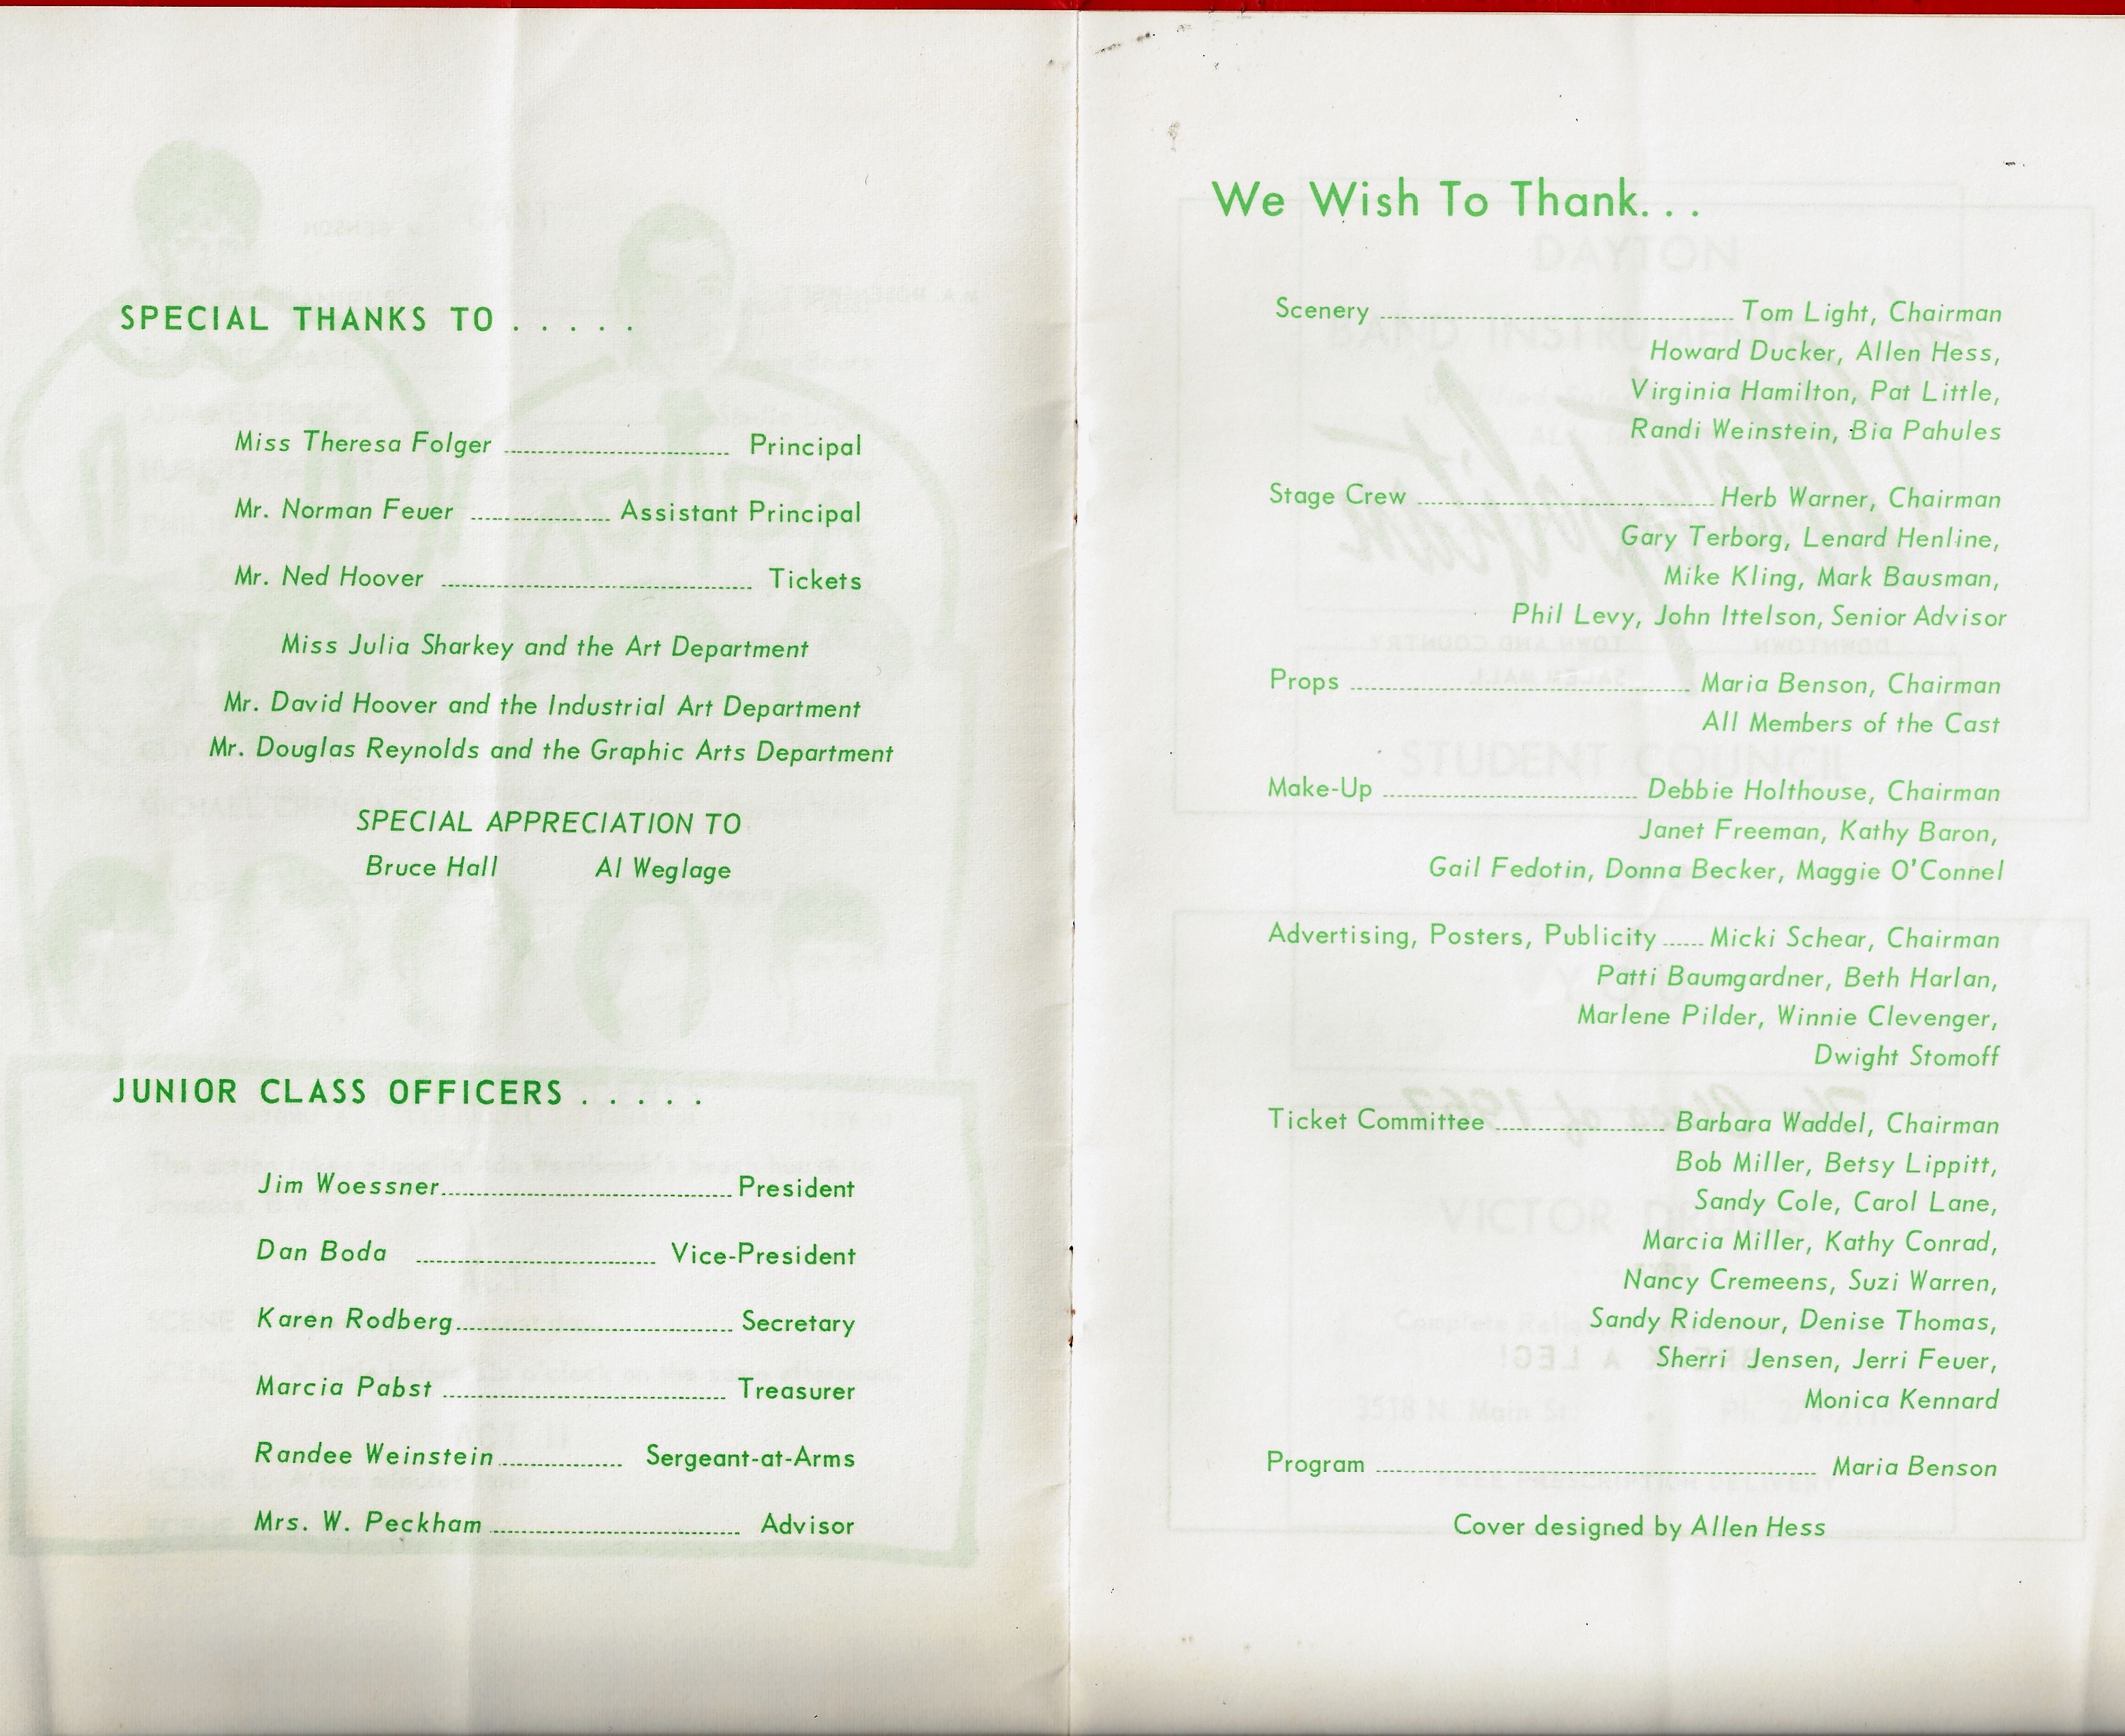 SPECIAL THANKS TO . . . . .
Miss Theresa Folger ........................ Principal
Mr. Norman Feuer ............... Assistant Principal
Mr. Ned Hoover ................................. Tickets
Miss Julia Sharkey and the Art Department
Mr. David Hoover and the Industrial Art Department
Mr. Douglas Reynolds and the Graphic Arts Department
SPECIAL APPRECIATION TO
Bruce Hall Al Weglage
JUNIOR CLASS OFFICERS . . . . .
Jim Woessner............................... President
Dan Boda ......................... Vice-President
Karen Rodberg............................. Secretary
Marcia Pabst .............................. Treasurer
Randee Weinstein............. Sergeant-at-Arms
Mrs. W. Peckham .......................... Advisor
We Wish To Thank. . .
Scenery ...................................... Tom Light, Chairman
Howard Ducker, Allen Hess,
Virginia Hamilton, Pat Little,
Randi Weinstein, Bia Pahules
Stage Crew ................................ Herb Warner, Chairman
Gary Terborg, Lenard Henline,
Mike Kling, Mark Bausman,
Phil Levy, John Ittelson, Senior Advisor
Props .................................... Maria Benson, Chairman
All Members of the Cast
Make-Up ........................... Debbie Holthouse, Chairman
Janet Freeman, Kathy Baron,
Gail Fedotin, Donna Becker, Maggie O'Connel
Advertising, Posters, Publicity ...... Micki Schear, Chairman
Patti Baumgardner, Beth Harlan,
Marlene Pilder, Winnie Clevenger,
Dwight Stomoff
Ticket Committee .................. Barbara Waddel, Chairman
Bob Miller, Betsy Lippitt,
Sandy Cole, Carol Lane,
Marcia Miller, Kathy Conrad,
Nancy Cremeens, Suzi Warren,
Sandy Ridenour, Denise Thomas,
Sherri Jensen, Jerri Feuer,
Monica Kennard
Program ............................................... Maria Benson
Cover designed by Allen Hess